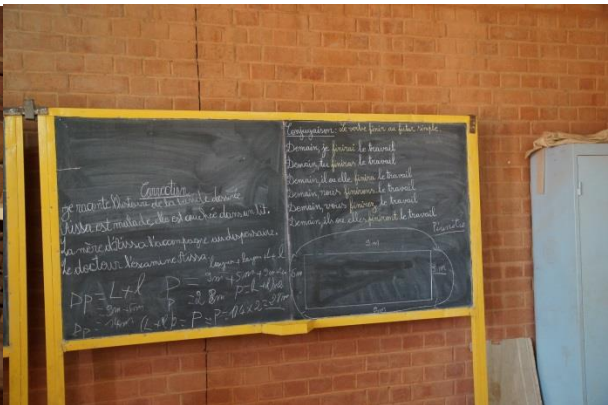 Correction
Je raconte l'histoire de la bande dessinée
Aïssa est malade, elle est couchée dans un lit.
La mère d'Aïssa l'accompagne au dispensaire.
Le docteur examine Aïssa.
DP = L + l
= 9m + 5m
DP = 14m
P = 9m + 5m + 9m +
P = 28m
P = 14 x 2 = 28m
Conjugaison: Le verbe finir au futur simple
Demain, je finirai le travail
Demain, tu finiras le travail
Demain, il ou elle finira le travail
Demain, nous finirons le travail
Demain, vous finirez le travail
Demain, ils ou elles finiront le travail
9m
5m